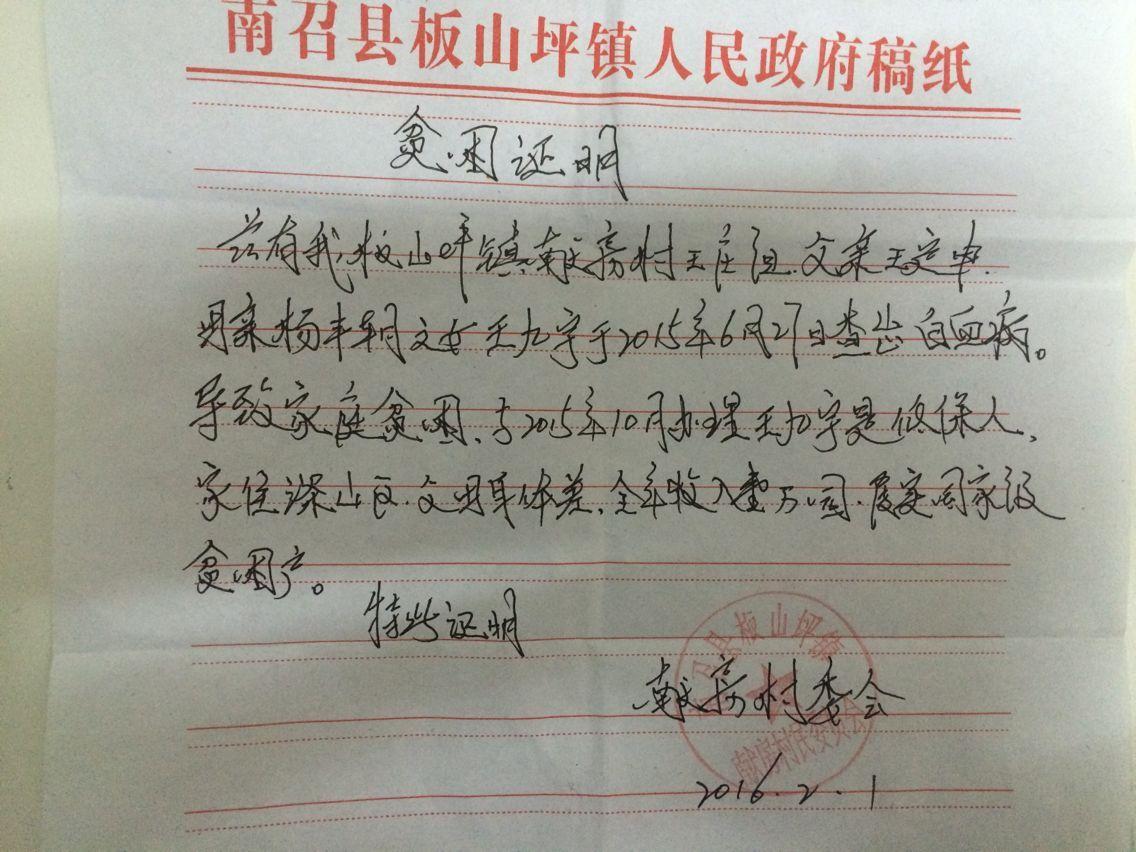 南召县板山坪镇人民政府稿纸
贫困证明
兹有我板山坪镇献房村王庄组.父亲王定申.
母亲杨丰朝女王九宇于2015年6月27日查出白血病。
导致家庭贫困、于2015年10月办理王九宇是低保人、
家住深山区.父母身体差、全年收入壹万圆.属定国家级
贫困户。
特此证明
献房村委会
召县板山坪镇
献房村民委员会
2016.2.1